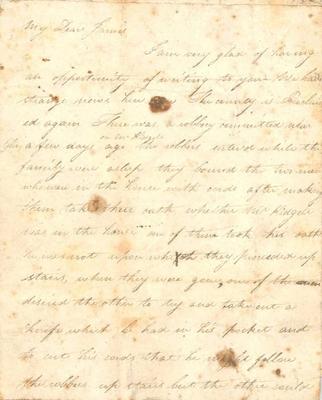 My Dear James
I am very glad of having
an opportunity of writing to you. We had
strange news here. The county is
ed again There was a robbery committed near
a few days ago the robbers entered while the
on Mr
family were asleep they bound the two men
who was in the house with cords after making
them take there oath whether Mr
was in the house one of them took his oath
he was not upon which they proceeded up
stairs, when they were gone, one of the men
desired the other to try and take out a
knife which he had in his pocket and
to cut his cords that he might follow
the robbers up stairs but the other could